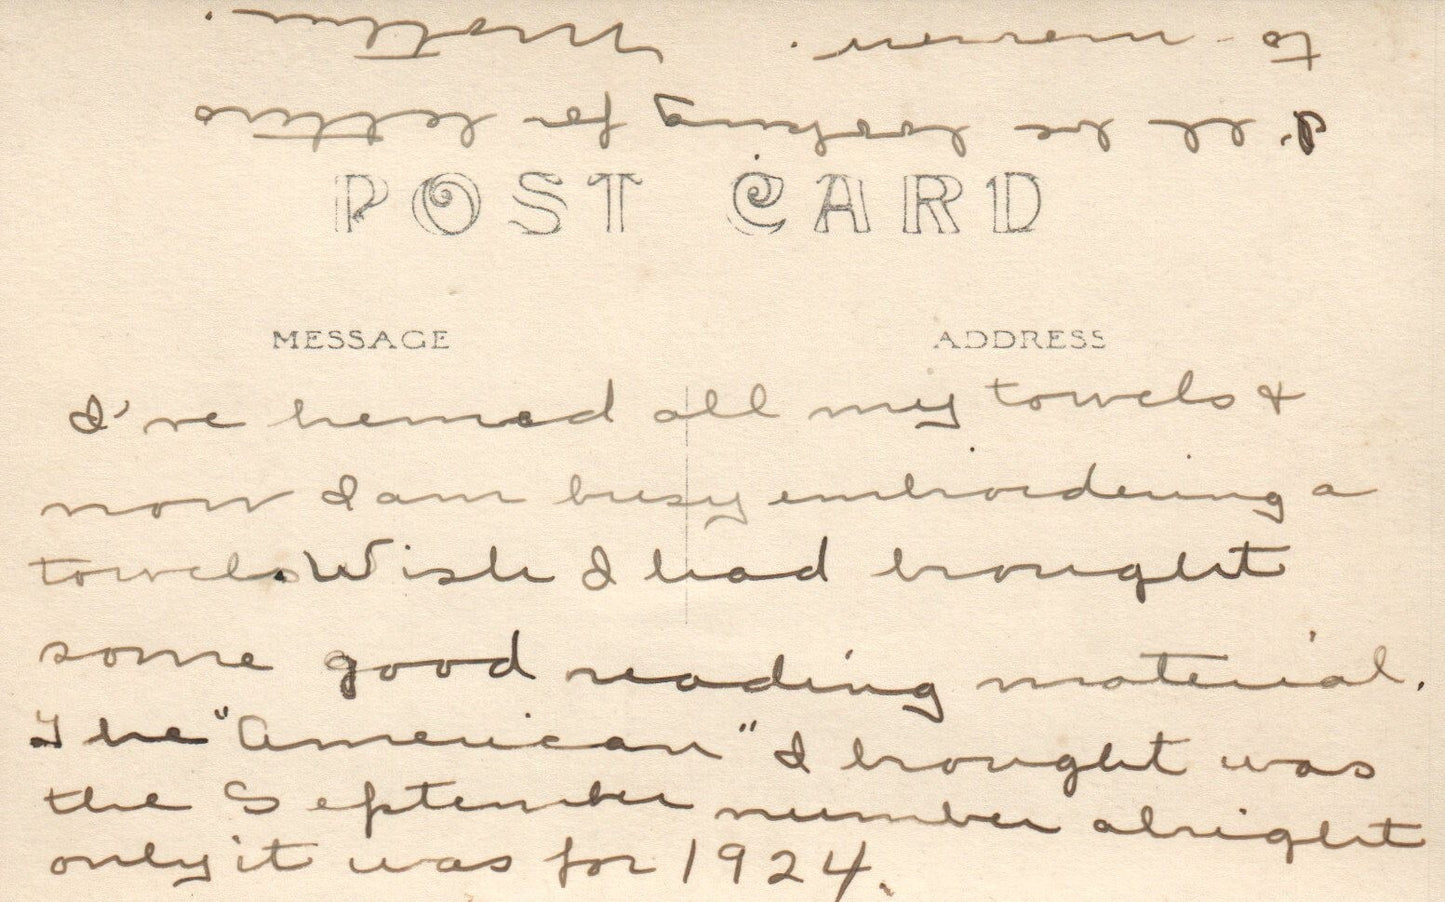 POST CARD
MESSAGE ADDRESS
I've hemed all my towels &
now I am busy embroidering a
towels. Wish I had brought
some good reading material.
The "American" I brought was
the September number alright
only it was for 1924.
I'll be looking for letters
to-morrow. Mother.